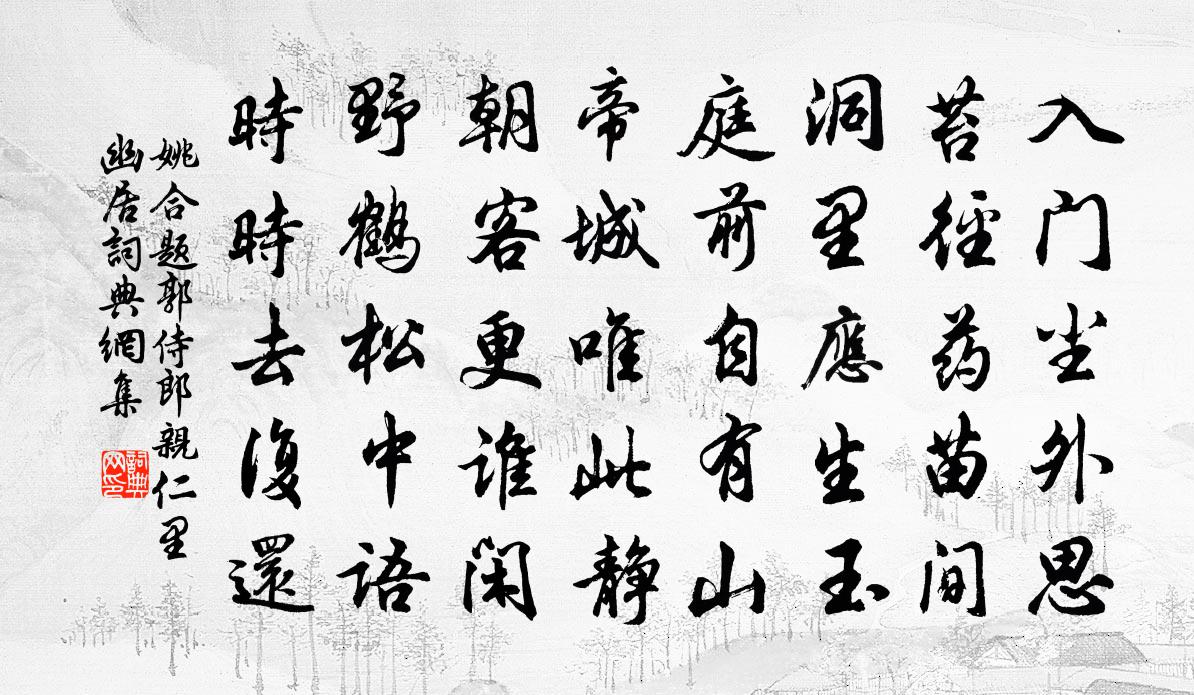 入门尘外思
苔径药苗间
洞里應生玉
庭前自有山
帝城唯此静
朝客更谁闲
野鶴松中语
時時去復還
姚合题郭侍郎親仁里
幽居詞典網集
詞典网印